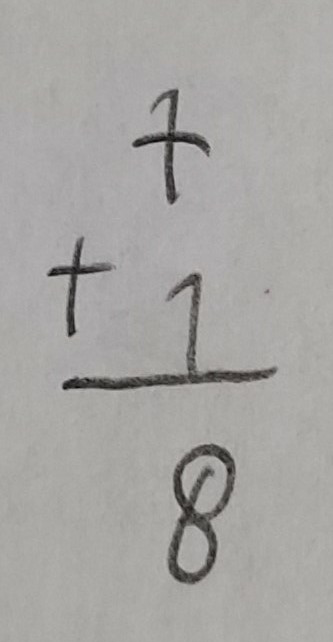 7
+ 1
8